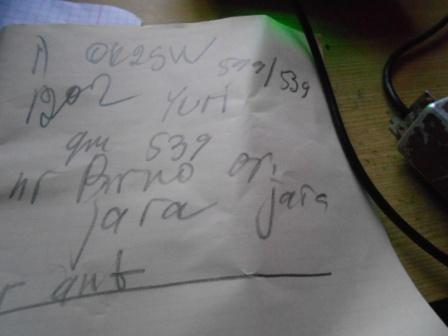 OK2SW 599/539
1202 Yuri
gm 539
nr Brno op.
jara jara
r ant